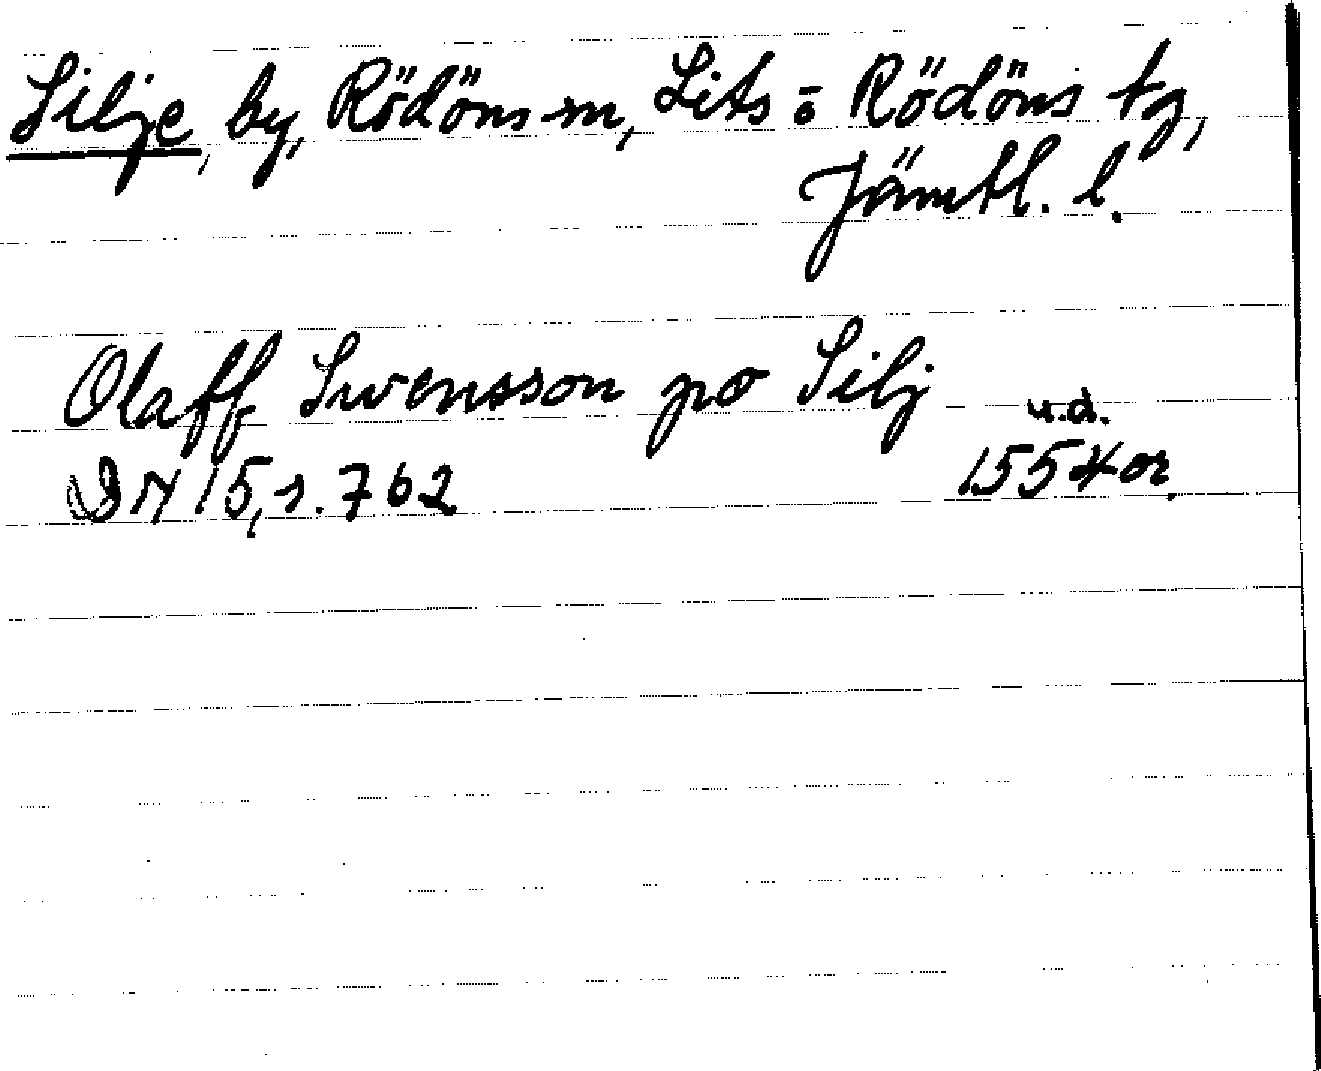 Silje, by, Rödöns sn, Lits o Rödöns tg,
Jämtl. l.
Olaff Swensson po Silj
u.d.
DN 15, s. 762 1554 or.